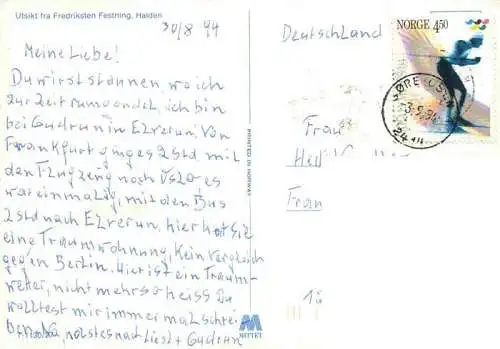 Utsikt fra Fredriksten Festning, Halden
30/8 94
Meine Liebe!
Du wirst staunen, wo ich
zur Zeit rumgondel, ich bin
bei Gudrun in Elverun. Von
Frankfurt ging es 2 std mit
den Flugzeug nach Oslo es
war einmalig, mit den Bus
2 std nach Elverun, hier hat sie
eine Traumwohnung, kein Vergleich
gegen Berlin. Hier ist ein Traum-
wetter, nicht mehr so heiss Du
wolltest mir immer mal schrei-
ben, alles nach Liesl + Gudrun
PRINTED IN NORWAY
MITTET
Deutschland
Frau
Frau
NORGE 4,50